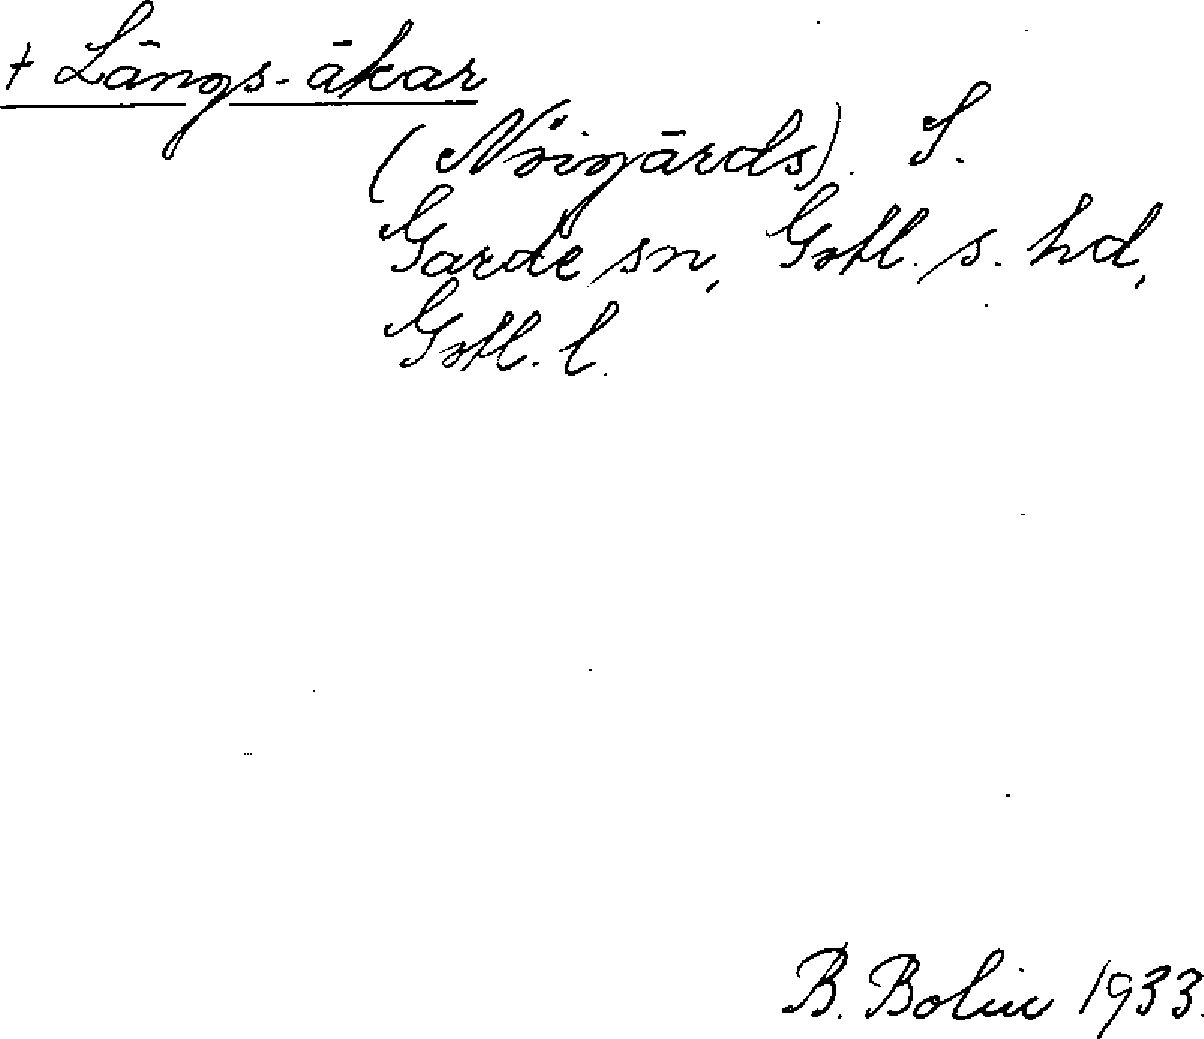 + Längs-åkar
(Nöigårds). S.
Garde sn, Gotl. s. hd,
Gotl. l.
B. Bolin 1933.